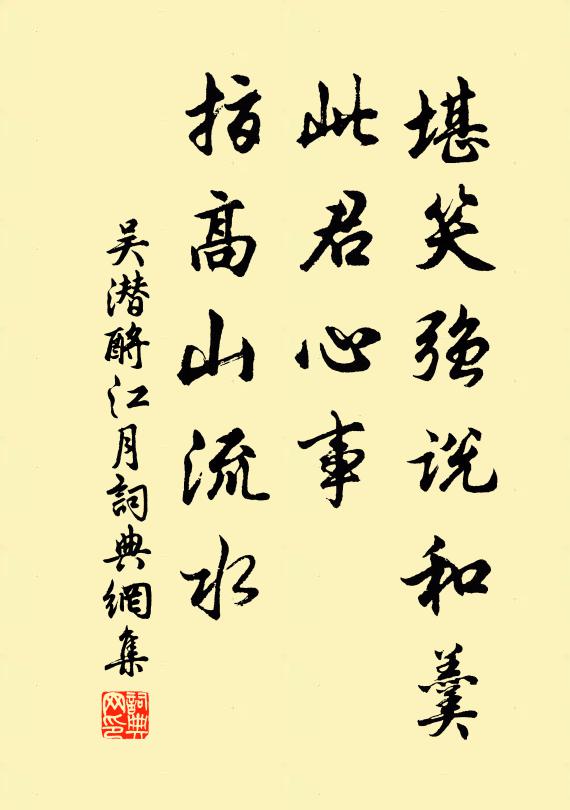 堪笑強説和羹
此君心事
指高山流水
吴潛酹江月詞典網集
詞典
网印